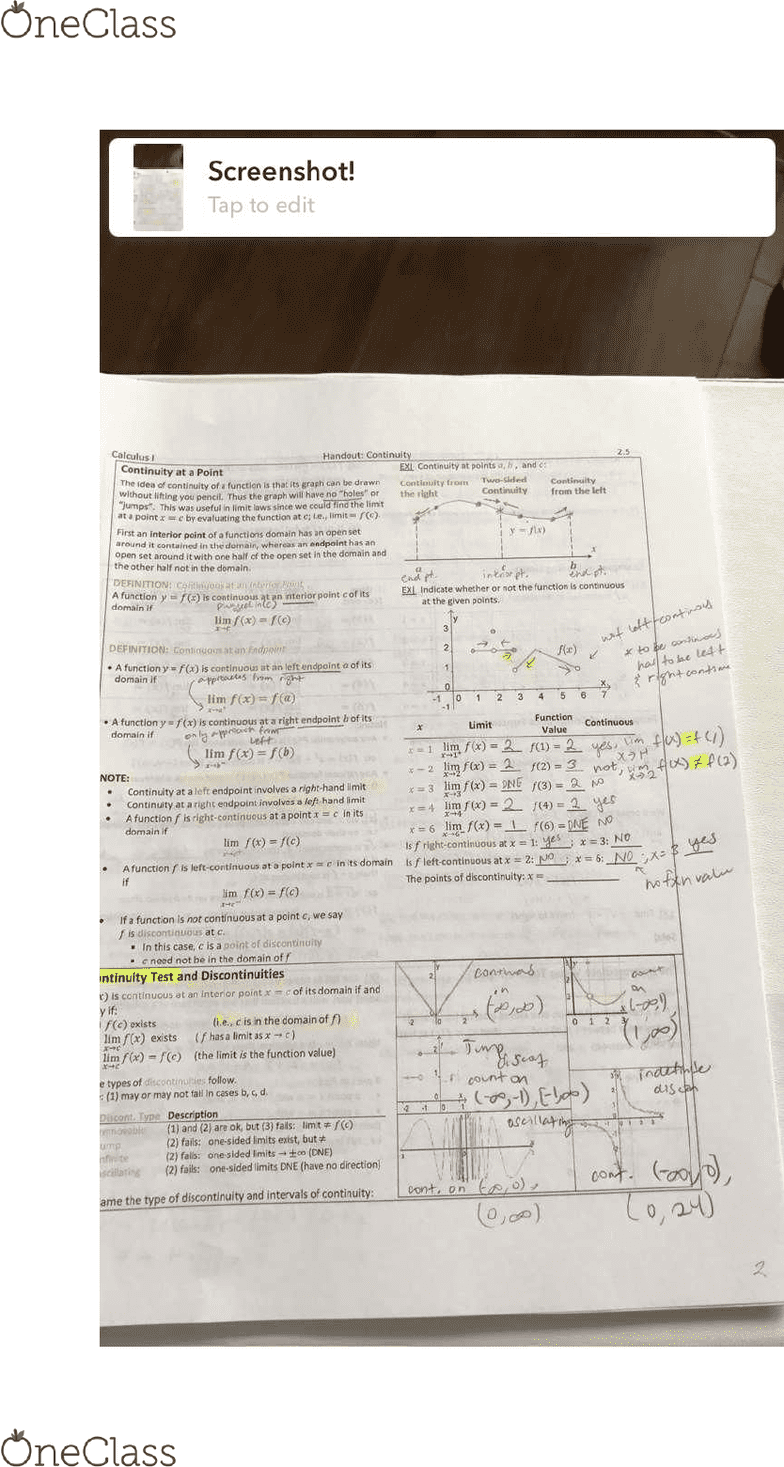 OneClass
Screenshot!
Tap to edit
Calculus I Handout: Continuity 2.5
Continuity at a Point
The idea of continuity of a function is that its graph can be drawn
without lifting you pencil. Thus the graph will have no "holes" or
"jumps". This was useful in limit laws since we could find the limit
at a point x = c by evaluating the function at c; i.e., limit = f(c).
First an interior point of a functions domain has an open set
around it contained in the domain, whereas an endpoint has an
open set around it with one half of the open set in the domain and
the other half not in the domain.
DEFINITION: Continuous at an Interior Point
A function y = f(x) is continuous at an interior point c of its
domain if
lim f(x) = f(c)
x→c
DEFINITION: Continuous at an Endpoint
• A function y = f(x) is continuous at an left endpoint a of its
domain if
approaches from right
lim f(x) = f(a)
• A function y = f(x) is continuous at a right endpoint b of its
domain if
only approach from
left
lim f(x) = f(b)
NOTE:
• Continuity at a left endpoint involves a right-hand limit
• Continuity at a right endpoint involves a left-hand limit
• A function f is right-continuous at a point x = c in its
domain if
lim f(x) = f(c)
• A function f is left-continuous at a point x = c in its domain
if
lim f(x) = f(c)
• If a function is not continuous at a point c, we say
f is discontinuous at c.
▪ In this case, c is a point of discontinuity
▪ c need not be in the domain of f
EX| Continuity at points a, b, and c:
Continuity from Two-Sided Continuity
the right Continuity from the left
y = f(x)
x
a c b
end pt. interior pt. end pt.
EX| Indicate whether or not the function is continuous
at the given points.
y
3
2
1
0
-1
f(x)
x
-1 0 1 2 3 4 5 6 7
left-continous
x to be continous
has to be left
& right continue
x Limit Function Value Continuous
x = 1 lim f(x) = 2 f(1) = 2 yes, lim f(x) = f(1)
x = 2 lim f(x) = 2 f(2) = 3 not, lim f(x) ≠ f(2)
x = 3 lim f(x) = DNE f(3) = 2 NO
x = 4 lim f(x) = 2 f(4) = 2 yes
x = 6 lim f(x) = 1 f(6) = DNE NO
Is f right-continuous at x = 1: yes ; x = 3: NO
Is f left-continuous at x = 2: NO ; x = 6: NO ; x = 3 yes
The points of discontinuity: x =
no fxn value
ntinuity Test and Discontinuities
c) is continuous at an interior point x = c of its domain if and
y if:
f(c) exists (i.e., c is in the domain of f)
lim f(x) exists (f has a limit as x → c)
x→c
lim f(x) = f(c) (the limit is the function value)
x→c
e types of discontinuities follow.
: (1) may or may not fail in cases b, c, d.
Discont. Type Description
removable (1) and (2) are ok, but (3) fails: limit ≠ f(c)
ump (2) fails: one-sided limits exist, but ≠
nfinite (2) fails: one-sided limits → ±∞ (DNE)
scillating (2) fails: one-sided limits DNE (have no direction)
ame the type of discontinuity and intervals of continuity:
continuous
in
(-∞, ∞)
cont
on
(-∞, 1)
(1, ∞)
Jump
discont
count on
(-∞, -1), [-1, ∞)
oscillating
cont. on (-∞, 0),
(0, ∞)
cont. (-∞, 0),
(0, 24)
2
OneClass